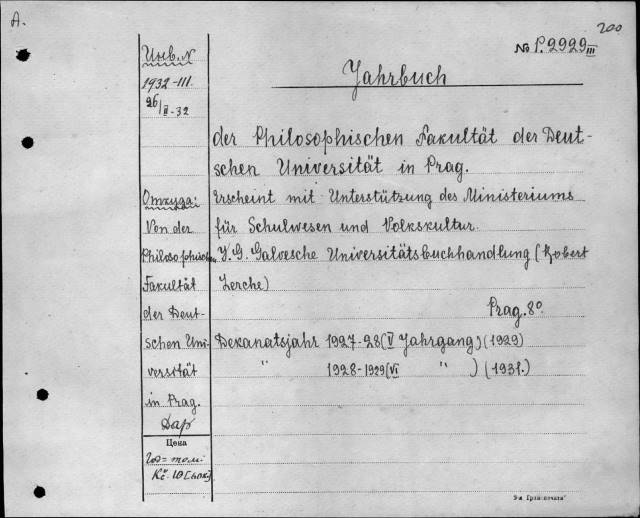 A.
200
№ P.2929 III
Инв. N
1932-III.
26/II-32
Jahrbuch
der Philosophischen Fakultät der Deut-
schen Universität in Prag.
Erscheint mit Unterstützung des Ministeriums
für Schulwesen und Volkskultur.
J. G. Calvesche Universitätsbuchhandlung (Robert
Lerche)
Prag. 8°.
Dekanatsjahr 1927-28 (V Jahrgang) (1929)
" 1928-1929 (VI " ) (1931.)
Откуда:
Von der
Philosophischen
Fakultät
der Deut-
schen Uni-
versität
in Prag.
Дар
Цена
Kč. 10